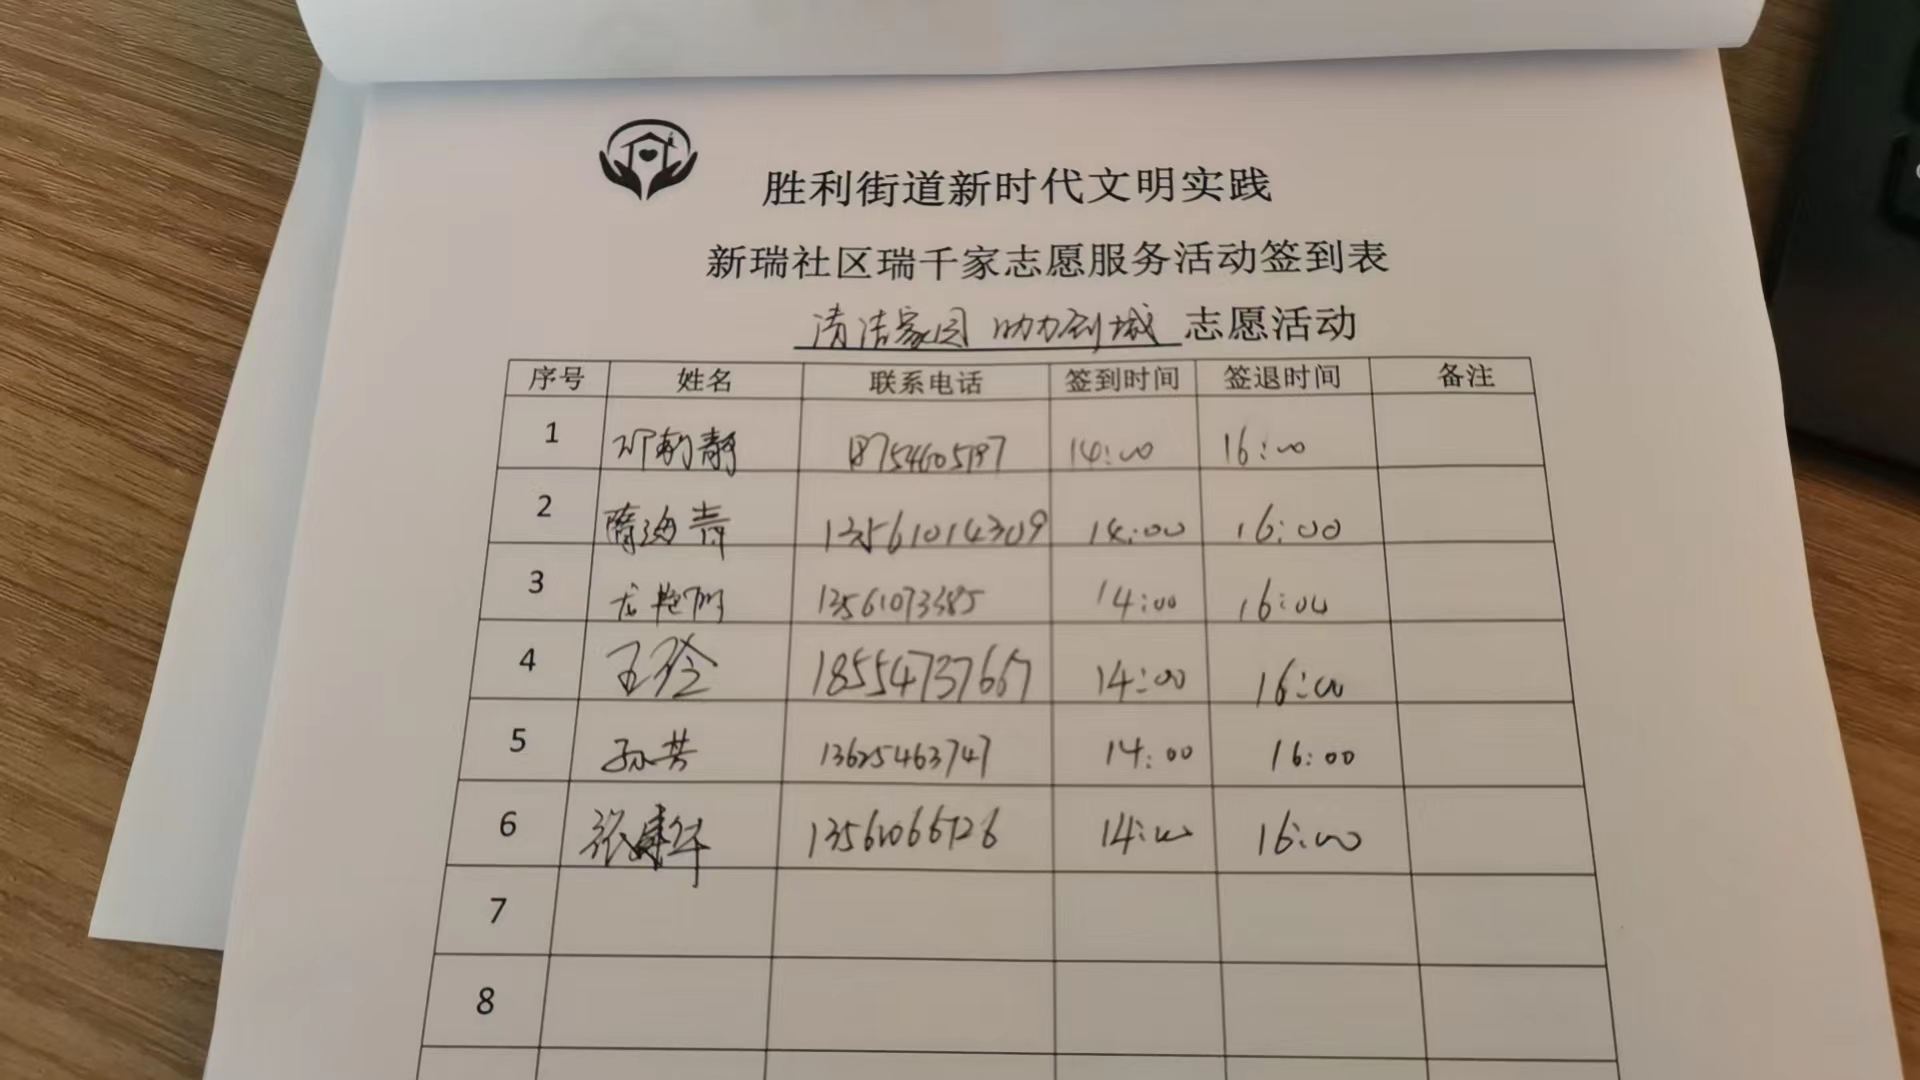 胜利街道新时代文明实践
新瑞社区瑞千家志愿服务活动签到表
清洁家园 助力创城 志愿活动
序号 姓名 联系电话 签到时间 签退时间 备注
1 18754605197 14:00 16:00
2 隋海青 13561014309 14:00 16:00
3 13561073385 14:00 16:00
4 王玲 18554737667 14:00 16:00
5 孙芳 13625463747 14:00 16:00
6 张建华 13561066726 14:00 16:00
7
8